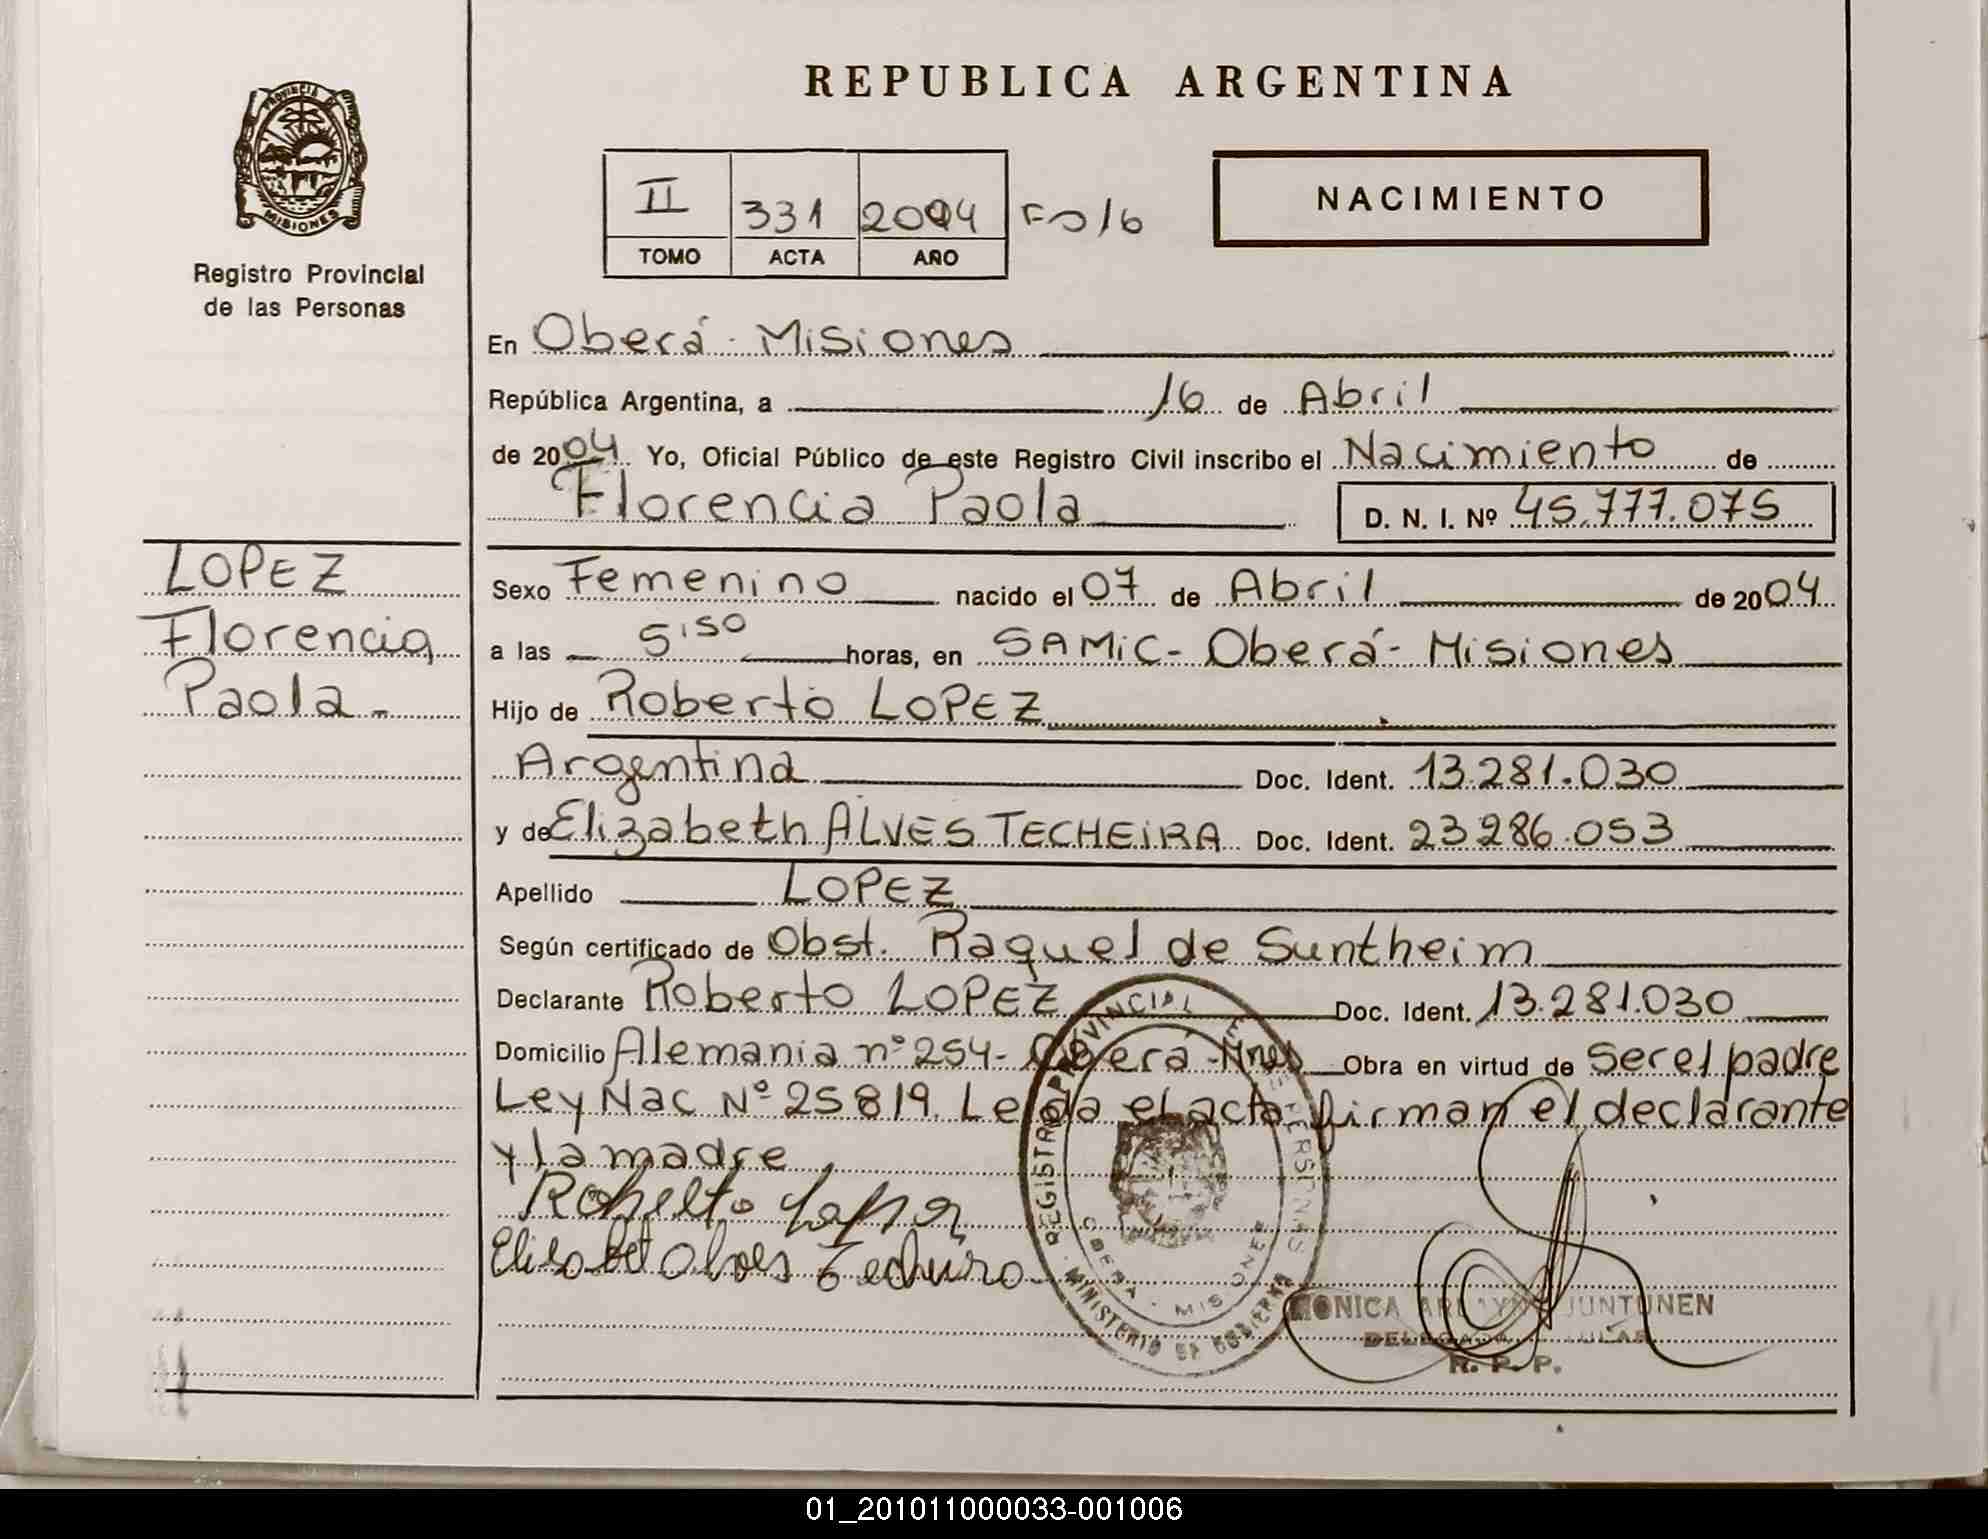 REPUBLICA ARGENTINA
PROVINCIA DE
MISIONES
Registro Provincial
de las Personas
II 331 2004 Fo 16
TOMO ACTA AÑO
NACIMIENTO
En Oberá - Misiones
República Argentina, a 16 de Abril
de 2004 Yo, Oficial Público de este Registro Civil inscribo el Nacimiento de
Florencia Paola D. N. I. Nº 45.777.075
LOPEZ
Florencia
Paola -
Sexo Femenino nacido el 07 de Abril de 2004
a las 5'50 horas, en SAMIC - Oberá - Misiones
Hijo de Roberto LOPEZ
Argentina Doc. Ident. 13.281.030
y de Elizabeth ALVES TECHEIRA Doc. Ident. 23286.053
Apellido LOPEZ
Según certificado de Obst. Raquel de Suntheim
Declarante Roberto LOPEZ Doc. Ident. 13.281.030
Domicilio Alemania nº 254 - Oberá - Mnes Obra en virtud de Ser el padre
Ley Nac Nº 25819. Leída el acta firman el declarante
y la madre
Roberto
REGISTRO PROVINCIAL DE LAS PERSONAS
OBERA - MISIONES
MINISTERIO DE GOBIERNO
MONICA JUNTUNEN
DELEGADA TITULAR
R. P. P.
01_201011000033-001006